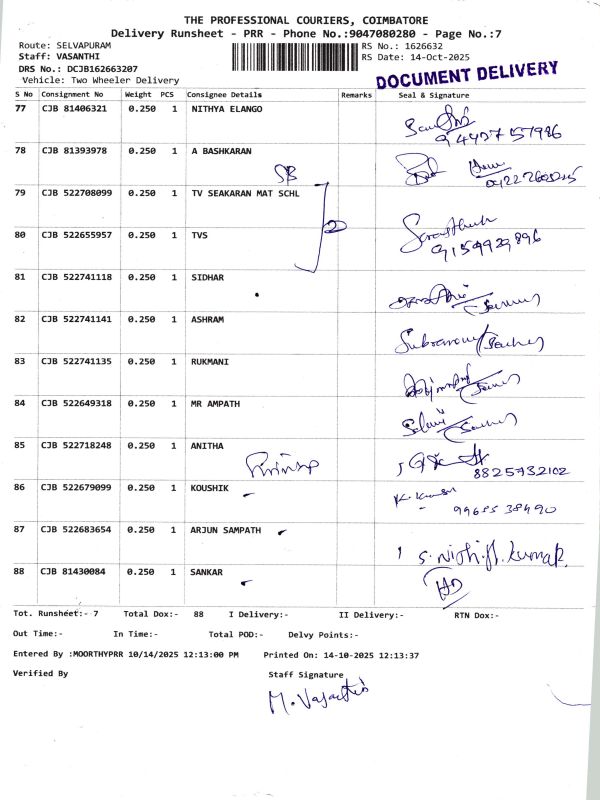 THE PROFESSIONAL COURIERS, COIMBATORE
Delivery Runsheet - PRR - Phone No.:9047080280 - Page No.:7
Route: SELVAPURAM RS No.: 1626632
Staff: VASANTHI RS Date: 14-Oct-2025
DRS No.: DCJB162663207
Vehicle: Two Wheeler Delivery
DOCUMENT DELIVERY
S No Consignment No Weight PCS Consignee Details Remarks Seal & Signature
77 CJB 81406321 0.250 1 NITHYA ELANGO
78 CJB 81393978 0.250 1 A BASHKARAN
SB
79 CJB 522708099 0.250 1 TV SEAKARAN MAT SCHL
2
80 CJB 522655957 0.250 1 TVS
9159929896
81 CJB 522741118 0.250 1 SIDHAR
82 CJB 522741141 0.250 1 ASHRAM
83 CJB 522741135 0.250 1 RUKMANI
84 CJB 522649318 0.250 1 MR AMPATH
85 CJB 522718248 0.250 1 ANITHA
8825732102
86 CJB 522679099 0.250 1 KOUSHIK
99685 38490
87 CJB 522683654 0.250 1 ARJUN SAMPATH
88 CJB 81430084 0.250 1 SANKAR
Tot. Runsheet:- 7 Total Dox:- 88 I Delivery:- II Delivery:- RTN Dox:-
Out Time:- In Time:- Total POD:- Delvy Points:-
Entered By :MOORTHYPRR 10/14/2025 12:13:00 PM Printed On: 14-10-2025 12:13:37
Verified By Staff Signature